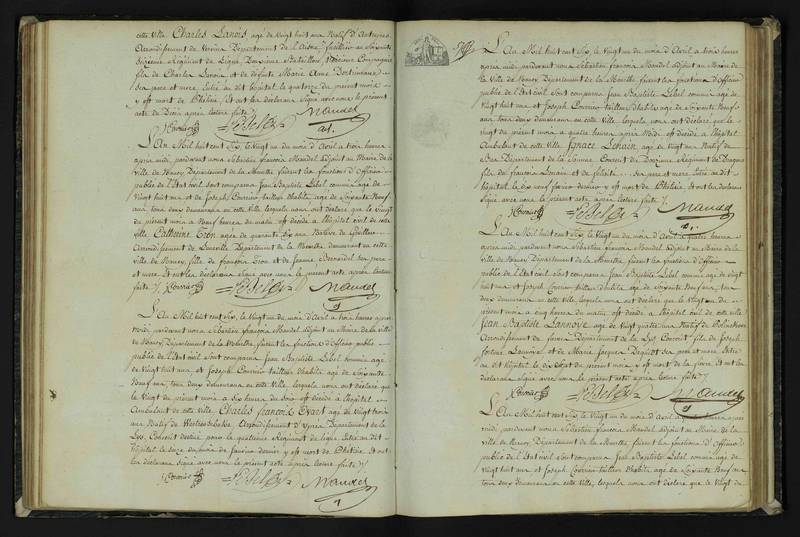 cette Ville Charles Lanois, agé de vingt huit ans Natif d'
Arrondissement de Vervins Departement de l'Aisne, fusillier au Soixante
Regiment de Ligne, Bataillon, Compagnie
fils de Charles Lanois et de défunte Marie Anne
Ses pere et mere, Entré au dit hôpital le quatorze du present mois
y est mort de Phthisie, Et ont les declarans Signé avec Nous le présent
acte de Décès après lecture faite
Couvrier Lebel Mandel
adj.
L'An Mil huit cent Six, le Vingt un du mois d'Avril a trois heures
après midi, pardevant nous Sébastien françois Mandel adjoint au Maire de la
Ville de Nancy Département de la Meurthe faisant les fonctions d'Officier
public de l'Etat civil Sont comparus Jean Baptiste Lebel commis agé de
Vingt huit ans et Joseph Couvrier tailleur d'habits agé de Soixante Neuf
ans tous deux demeurans en cette Ville lesquels nous ont déclaré que le Vingt
du présent mois a Neuf heures du matin est décédé a l'hôpital civil de cette
ville Catherine Tron agée de quarante Six ans Native de
Arrondissement de Lunéville Département de la Meurthe, demeurant en cette
Ville de Nancy, fille de françois Tron et de Jeanne Bernardel Ses pere
et mere. Et ont les déclarans Signé avec nous le présent acte, après lecture
faite Couvrier Lebel Mandel
L'An Mil huit cent Six, le Vingt un du mois d'Avril a trois heures après
midi, pardevant nous Sébastien françois Mandel adjoint au Maire de la Ville
de Nancy, Departement de la Meurthe, faisant les fonctions d'Officier public
public de l'Etat civil Sont comparus Jean Baptiste Lebel commis agé
de Vingt huit ans et Joseph Couvrier tailleur d'habits agé de Soixante
Neuf ans, tous deux demeurans en cette Ville, lesquels nous ont déclaré que
le Vingt du présent mois a Six heures du Soir est décédé a l'hôpital
Ambulant de cette Ville, Charles François agé de Vingt trois
ans Natif de Arrondissement d'Ypres Departement de la
Lys, Conscrit destiné pour le quatrieme Régiment de ligne, Entré au dit
hôpital le onze du mois de Janvier dernier y est mort de Phthisie. Et ont
les déclarans Signé avec nous le présent acte après lecture faite
Couvrier Lebel Mandel
L'An Mil huit cent Six, le vingt un du mois d'Avril a trois heures
après midi, pardevant nous Sébastien françois Mandel adjoint au Maire de
la Ville de Nancy, Département de la Meurthe, faisant les fonctions d'Officier
public de l'Etat civil Sont comparus Jean Baptiste Lebel commis agé de
vingt huit ans et Joseph Couvrier tailleur d'habits agé de Soixante Neuf
ans tous deux demeurans en cette Ville, lesquels nous ont déclaré que le
vingt du présent mois a quatre heures après Midi est décédé a l'hôpital
Ambulant de cette Ville Ignace Lehain, agé de vingt ans Natif de
Departement de Conscrit du Douzieme Régiment de Dragons
fils de françois Lehain et de Ses pere et mere, Entré au dit
hôpital le dix neuf fevrier dernier y est mort de Phthisie Et ont les déclarans
Signé avec nous le présent acte après lecture faite
Couvrier Lebel Mandel
L'An Mil huit cent Six, le Vingt un du mois d'Avril a quatre heures
après midi, pardevant nous Sébastien françois Mandel adjoint au Maire de la
Ville de Nancy Département de la Meurthe, faisant les fonctions d'Officier
public de l'Etat civil Sont comparus Jean Baptiste Lebel commis agé de vingt
huit ans, et Joseph Couvrier tailleur d'habits agé de Soixante Neuf ans, tous
deux demeurans en cette Ville, lesquels nous ont déclaré que le Vingt un du
présent mois a cinq heures du matin est décédé a l'hôpital civil de cette ville
Jean Baptiste Lannoye agé de Vingt quatre ans Natif de
Arrondissement de furnes Departement de la Lys, Conscrit fils de Joseph
Lannoye et de Marie Jacques Ses pere et mere. Entré
au dit hôpital, le dix Sept du présent mois y est mort de la fievre Et ont les
déclarans Signé avec nous le présent acte après lecture faite
Couvrier Lebel Mandel
L'An Mil huit cent Six, le vingt un du mois d'Avril a quatre heures après
midi, pardevant nous Sébastien françois Mandel adjoint au Maire de la
Ville de Nancy, Département de la Meurthe, faisant les fonctions d'Officier
public de l'Etat civil Sont comparus Jean Baptiste Lebel commis agé de
vingt huit ans et Joseph Couvrier tailleur d'habits agé de Soixante Neuf ans
tous deux demeurans en cette Ville, lesquels nous ont déclaré que le Vingt du